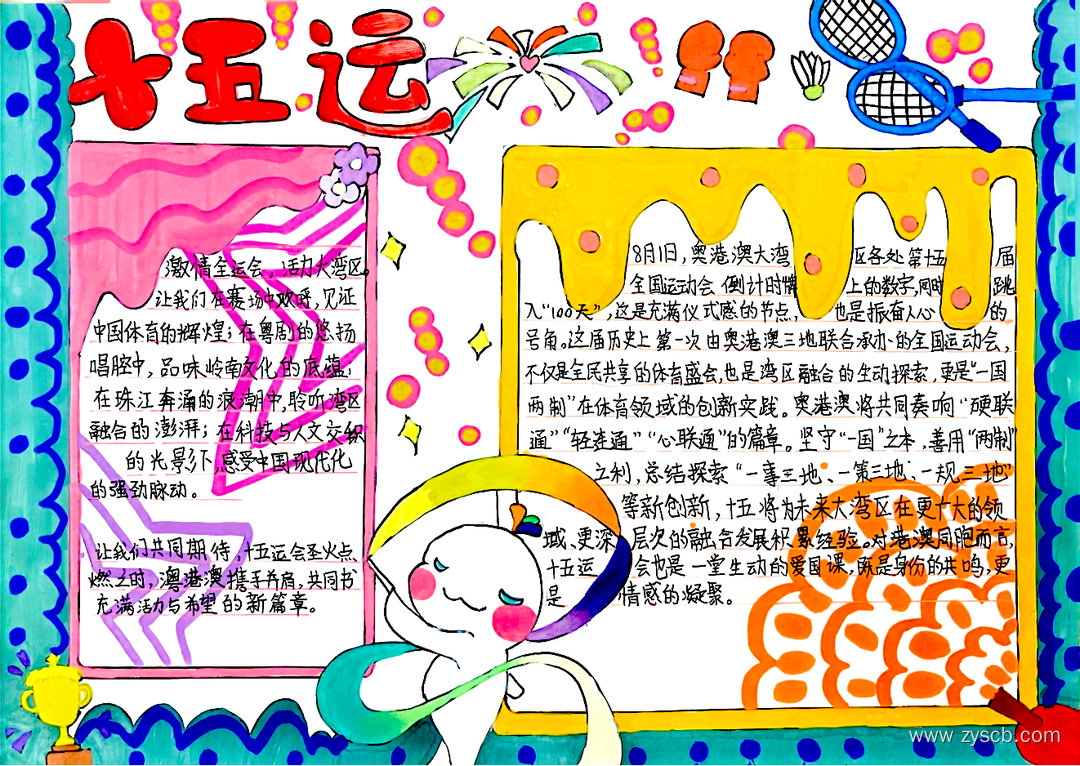 十五运
激情全运会，活力大湾区。
让我们在赛场中欢呼，见证
中国体育的辉煌；在粤剧的悠扬
唱腔中，品味岭南文化的底蕴；
在珠江奔涌的浪潮中，聆听湾区
融合的澎湃；在科技与人文交织
的光影下，感受中国现代化
的强劲脉动。
让我们共同期待，十五运会圣火点
燃之时，粤港澳携手并肩，共同书
充满活力与希望的新篇章。
8月1日，奥港澳大湾区各处第十五届
全国运动会倒计时 上的数字，同时跳
入“100天”，这是充满仪式感的节点，也是振奋人心的
号角。这届历史上第一次由奥港澳三地联合承办的全国运动会，
不仅是全民共享的体育盛会，也是湾区融合的生动探索，更是“一国
两制”在体育领域的创新实践。奥港澳将共同奏响“硬联
通”“轻连通”“心联通”的篇章。坚守“一国”之本，善用“两制”
之利，总结探索“一事三地、一策三地、一规三地”
等新创新，十五将为未来大湾区在更广大的领
域、更深层次的融合发展积累经验。对港澳同胞而言，
十五运会也是一堂生动的爱国课，既是身份的共鸣，更
是情感的凝聚。
www.zyscb.com